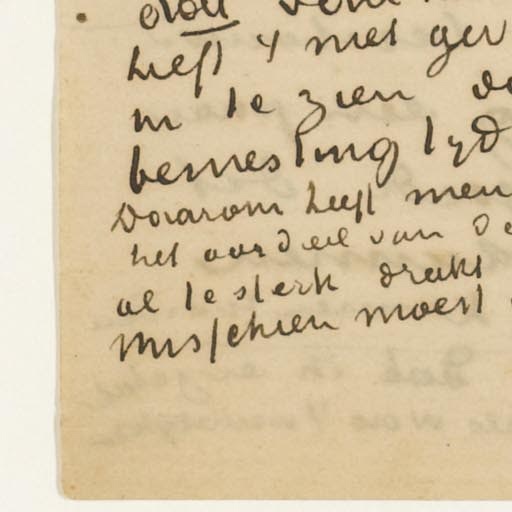 heeft 't met
in te zien
bemesting lyd
Daarom heeft men
het oordeel van
al te sterk drukt
Misschien moest